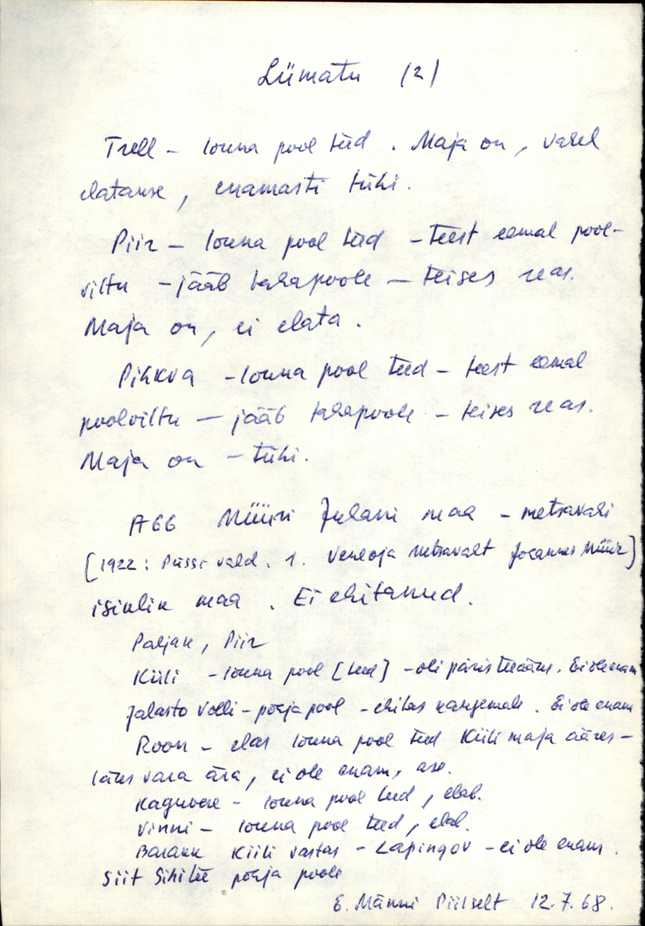 Liimatu (2)
Trell - louna pool teed. Maja on, vahel
elatakse, enamasti tühi.
Piir - louna pool teed - teest eemal pool-
viltu - jääb tahapoole - teises reas.
Maja on, ei elata.
Pihkva - louna pool teed - teest eemal
poolviltu - jääb tahapoole - teises reas.
Maja on - tühi.
A66 Müüri Julani maa - metsavahi
[1922: Püssi vald. 1. Veneoja metsavaht Johannes Müür]
isiklik maa. Ei ehitanud.
Paljak, Piir
Kiili - louna pool [teed] - oli päris tee ääres. Ei ole enam
Jalasto Volli - pohja pool - ehitas kaugemale. Ei ole enam
Roon - elas louna pool teed Kiili maja ääres -
läks vara ära, ei ole enam, ase.
Kaguvere - louna pool teed, elab.
Vinni - louna pool teed, elab.
Barank Kiili vastas - Lapingov - ei ole enam.
Siit Sihitee pohja poole
E. Männi Piilselt 12.7.68.